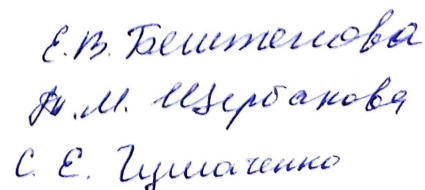 Е. В. Бештенова
Т. М. Щербакова
С. Е. Гумаченко